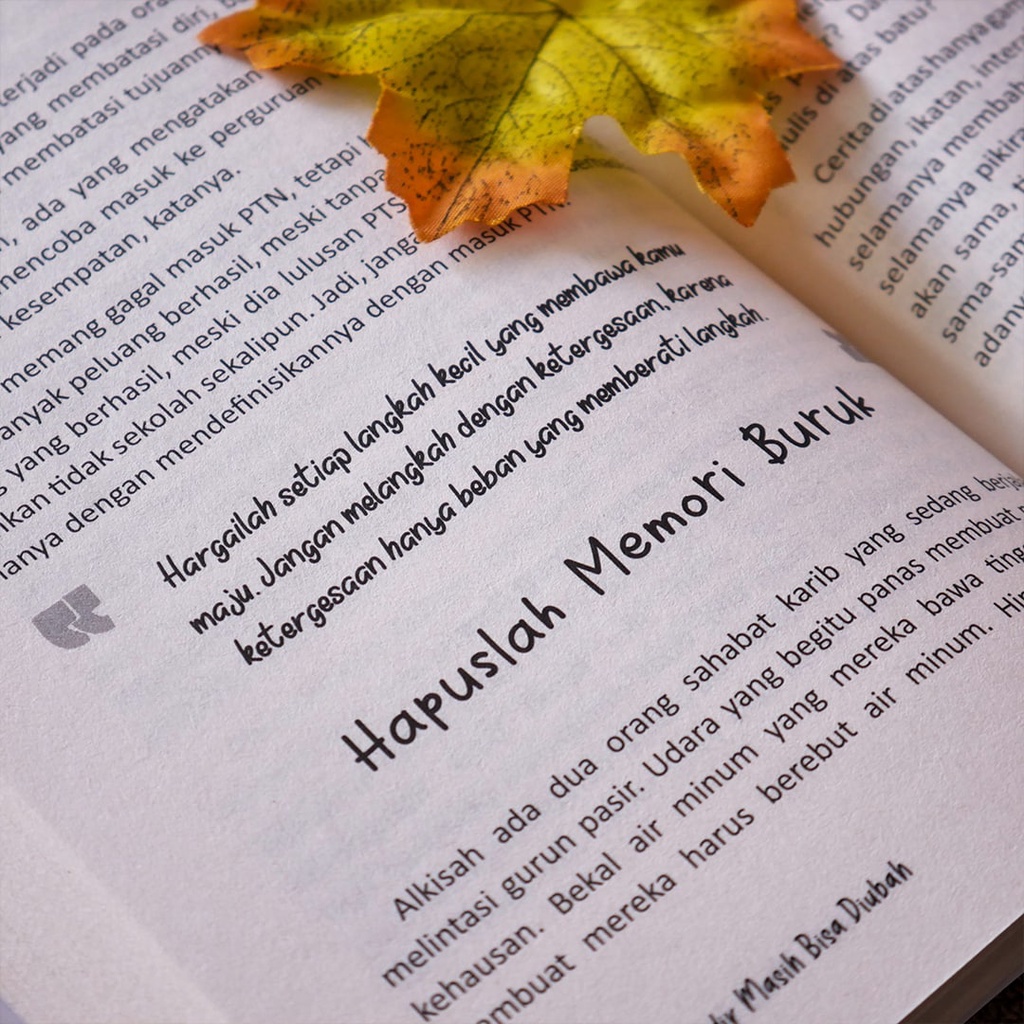 erjadi pada
yang membatasi diri,
membatasi tujuann
ada yang mengatakan
mencoba masuk ke perguruan
kesempatan, katanya.
memang gagal masuk PTN, tetapi
anyak peluang berhasil, meski tanpa
yang berhasil, meski dia lulusan PTS
kan tidak sekolah sekalipun. Jadi, janga
anya dengan mendefinisikannya dengan masuk PTN.
Hargailah setiap langkah kecil yang membawa kamu
maju. Jangan melangkah dengan ketergesaan, karena
ketergesaan hanya beban yang memberati langkah.
Hapuslah Memori Buruk
Alkisah ada dua orang sahabat karib yang sedang berja
melintasi gurun pasir. Udara yang begitu panas membuat
kehausan. Bekal air minum yang mereka bawa ting
embuat mereka harus berebut air minum. Hi
dir Masih Bisa Diubah
ulis di atas batu?
Cerita di atas hanya gam
hubungan, ikatan, inter
selamanya membah
selamanya pikira
akan sama, t
sama-sam
adany